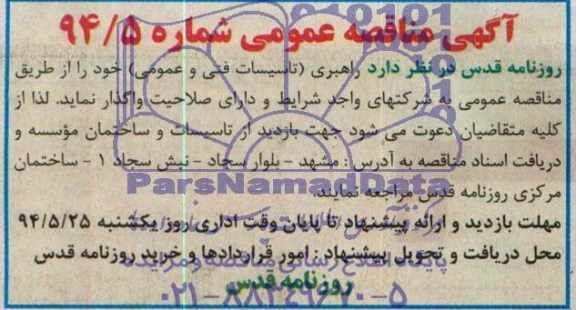 آگهی مناقصه عمومی شماره ۹۴/۵
روزنامه قدس در نظر دارد راهبری (تاسیسات فنی و عمومی) خود را از طریق
مناقصه عمومی به شرکتهای واجد شرایط و دارای صلاحیت واگذار نماید. لذا از
کلیه متقاضیان دعوت می شود جهت بازدید از تاسیسات و ساختمان مؤسسه و
دریافت اسناد مناقصه به آدرس : مشهد - بلوار سجاد - نبش سجاد ۱ - ساختمان
ParsNamadData
مرکزی روزنامه قدس مراجعه نمایند.
مهلت بازدید و ارائه پیشنهاد تا پایان وقت اداری روز یکشنبه ۹۴/۵/۲۵
محل دریافت و تحویل پیشنهاد : امور قراردادها و خرید روزنامه قدس
پایگاه اطلاع رسانی مناقصه و مزایده
روزنامه قدس
۰۲۱-۸۸۳۴۹۶۷۰-۵